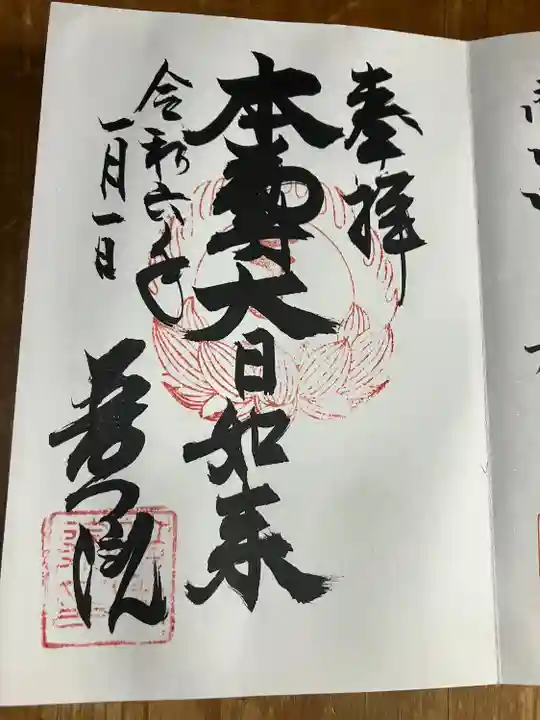 奉拝
本尊大日如来
令和六年
一月一日
院